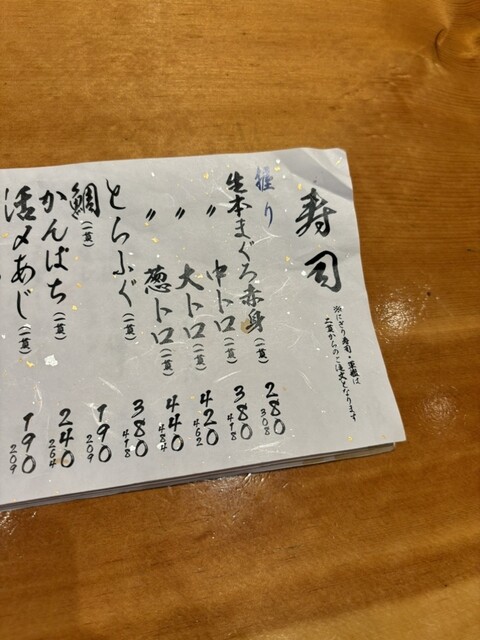 寿司
※にぎり寿司・軍艦は
二貫からのご注文となります
握り
生本まぐろ赤身(一貫) 280 308
〃 中トロ(一貫) 380 418
〃 大トロ(一貫) 420 462
〃 葱トロ(一貫) 440 484
とらふぐ(一貫) 380 418
鯛(一貫) 190 209
かんぱち(一貫) 240 264
活〆あじ(一貫) 190 209